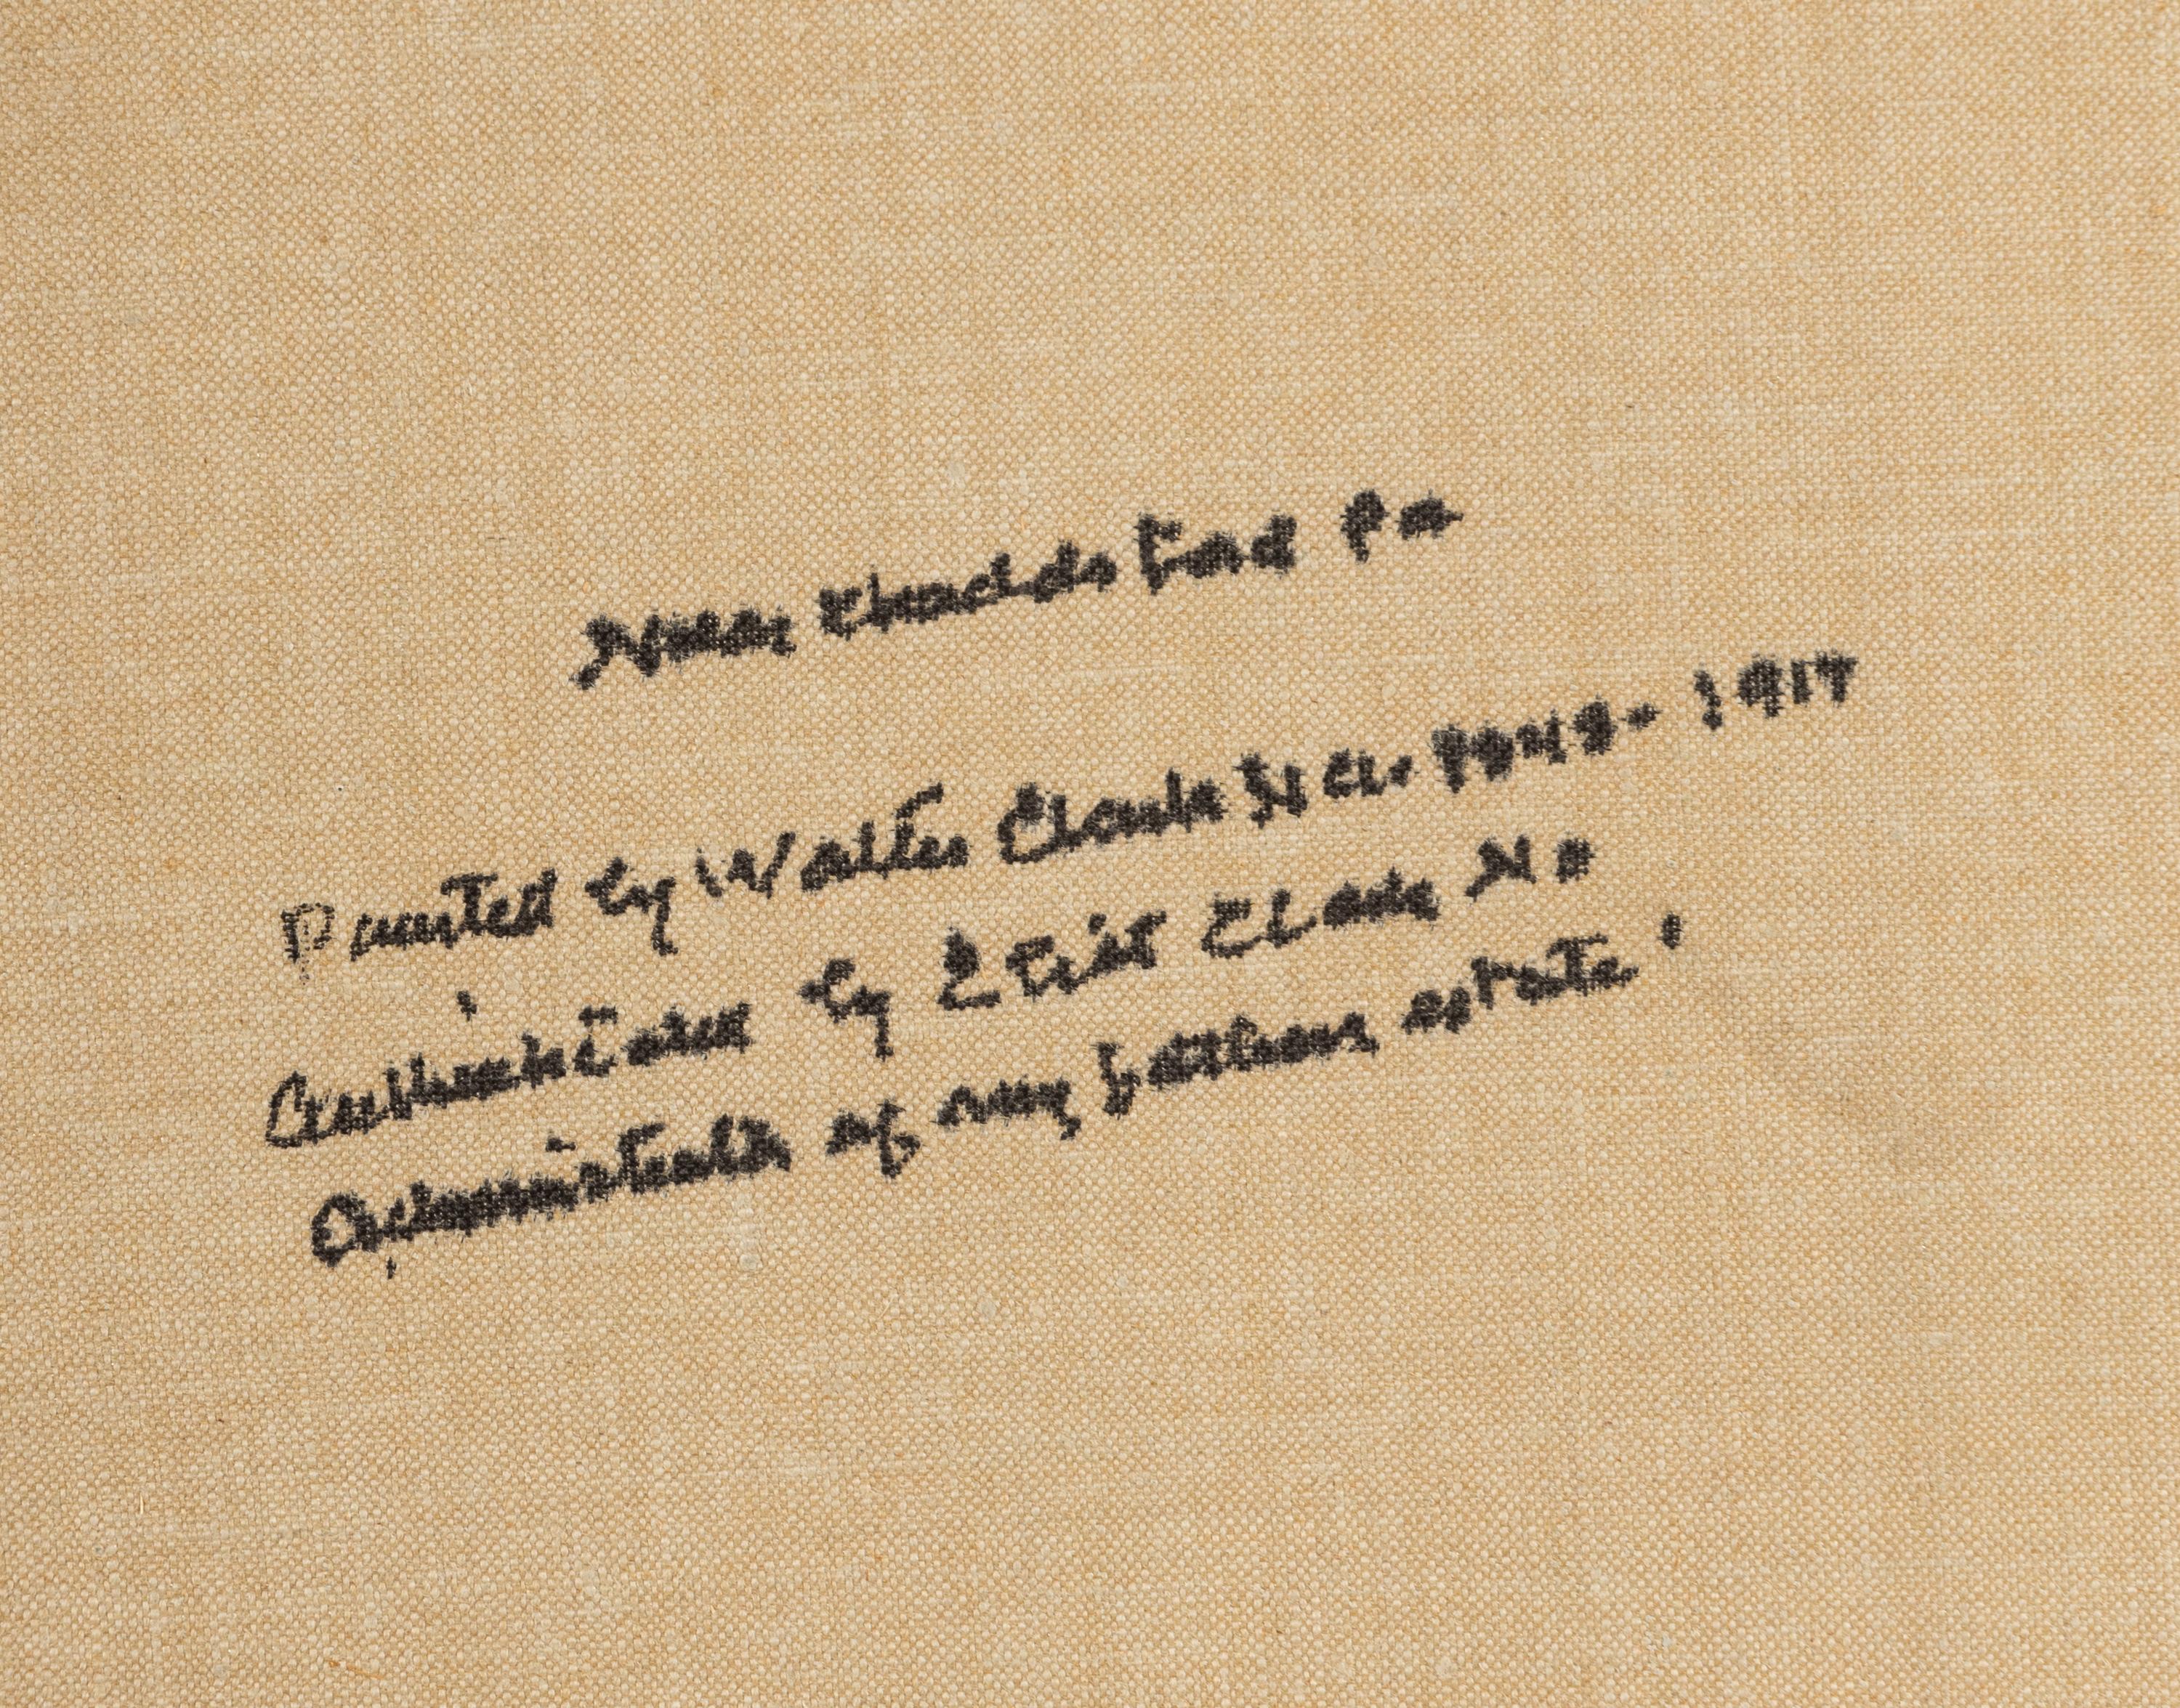 Near Chadds Ford Pa
Painted by Walter Clark N.A. 1848-1917
Authenticated by Eliot Clark N A
Administrator of my fathers estate